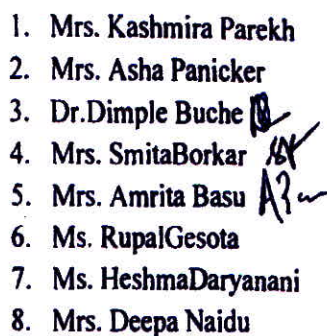 1. Mrs. Kashmira Parekh
2. Mrs. Asha Panicker
3. Dr.Dimple Buche
4. Mrs. SmitaBorkar
5. Mrs. Amrita Basu
6. Ms. RupalGesota
7. Ms. HeshmaDaryanani
8. Mrs. Deepa Naidu